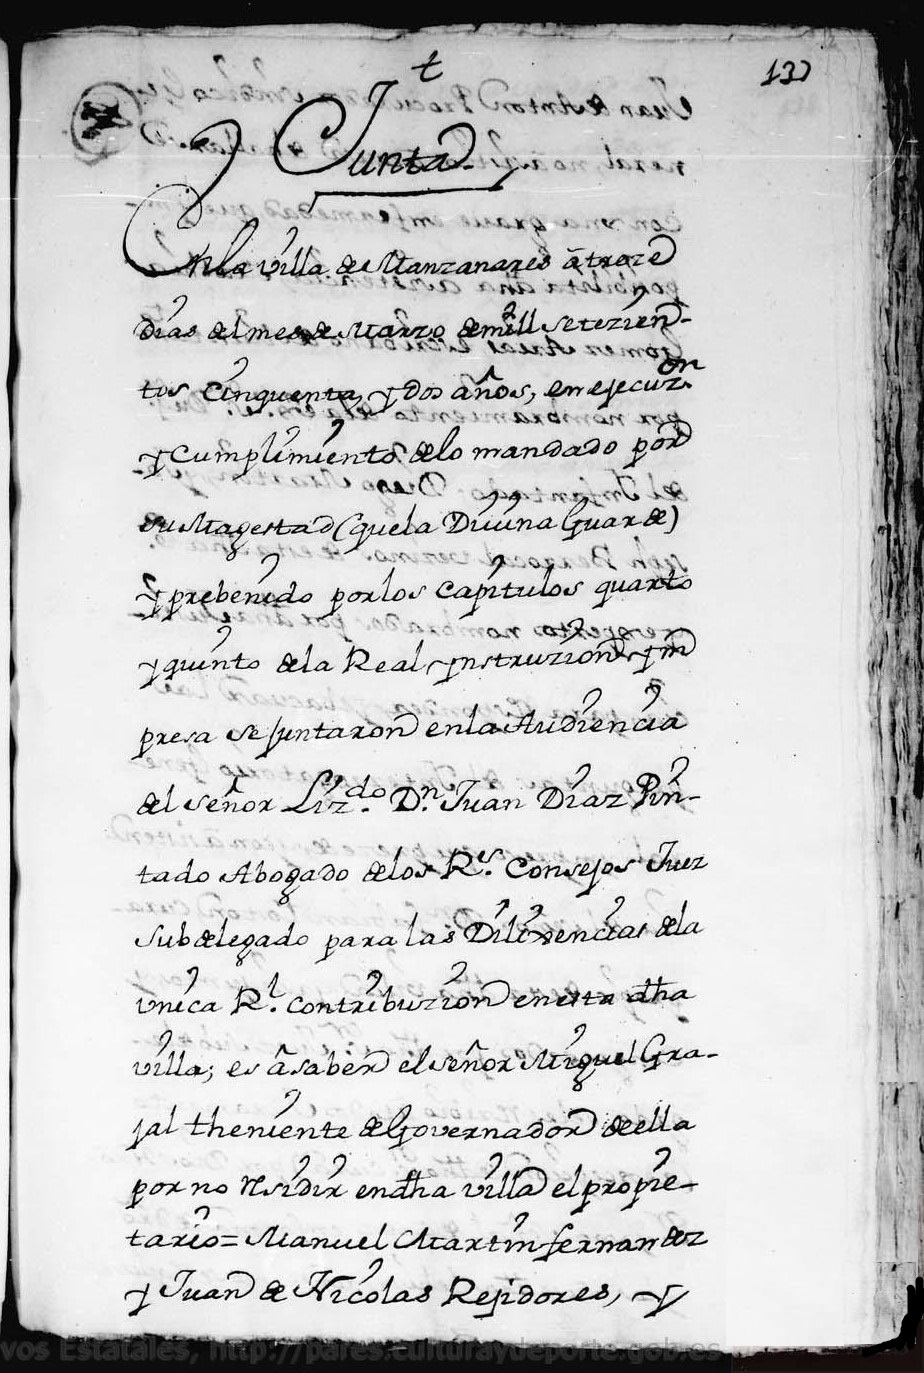 t
132
Junta
En la villa de Manzanares á treze
dias del mes de Marzo de mill Setezien-
tos Cinquenta, y dos años, en ejecuz.on
y Cumplimiento de lo mandado por
su Magestad (que la Divina Guarde)
y prebenido por los Capitulos quarto
y quinto de la Real ynstruzion ym
presa se juntaron en la Audiencia
del señor Lizdo. Dn. Juan Diaz Pin-
tado Abogado de los Rs. Consejos Juez
Subdelegado para las Dilixencias de la
unica Rl. Contribuzion en esta dha
villa; es á saber el señor Miguel Gra-
jal theniente de Governador de ella
por no residir en dha villa el propie-
tario = Manuel Martin fernandez
y Juan de Nicolas Rejidores, y
vos Estatales, http://pares.culturaydeporte.gob.es